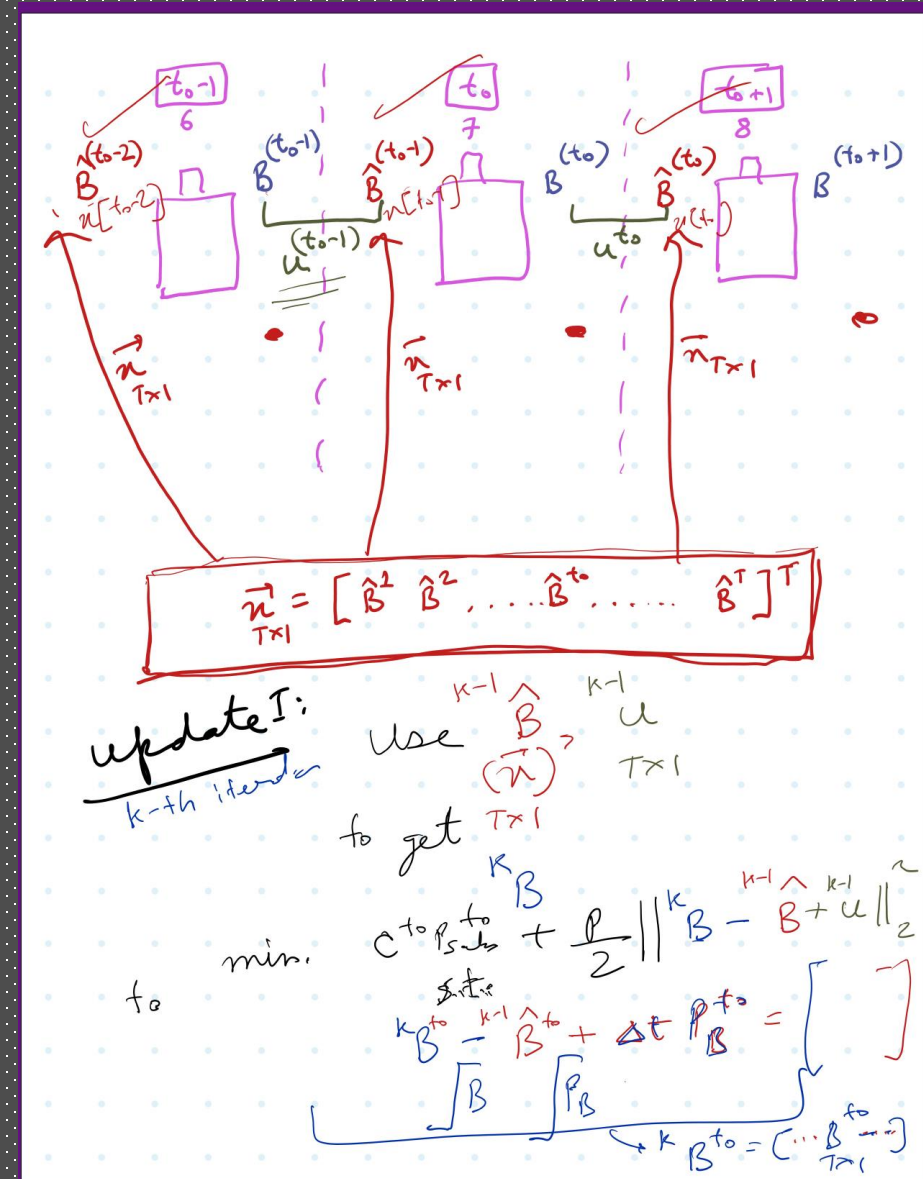 t₀-1 t₀ t₀+1
6 7 8
B̂^(t₀-2) B^(t₀-1) B̂^(t₀-1) B^(t₀) B̂^(t₀) B^(t₀+1)
x[t₀-2] x[t₀-1] x[t₀]
u^(t₀-1) u^t₀
x⃗ T×1 x⃗ T×1 x⃗ T×1
x⃗ T×1 = [ B̂¹ B̂² ..... B̂^t₀ ...... B̂^T ]^T
update I:
k-th iteration
Use ^(k-1)B̂ (x⃗) T×1 , ^(k-1)u T×1
to get ^k B
to min. C^t₀ P_sub^t₀ + ρ/2 || ^k B - ^(k-1)B̂ + ^(k-1)u ||₂²
s.t.
^k B^t₀ - ^(k-1)B̂^t₀ + Δt P_B^t₀ = [ ]
∫B ∫P_B
↪ ^k B^t₀ = [... B^t₀ ...] T×1